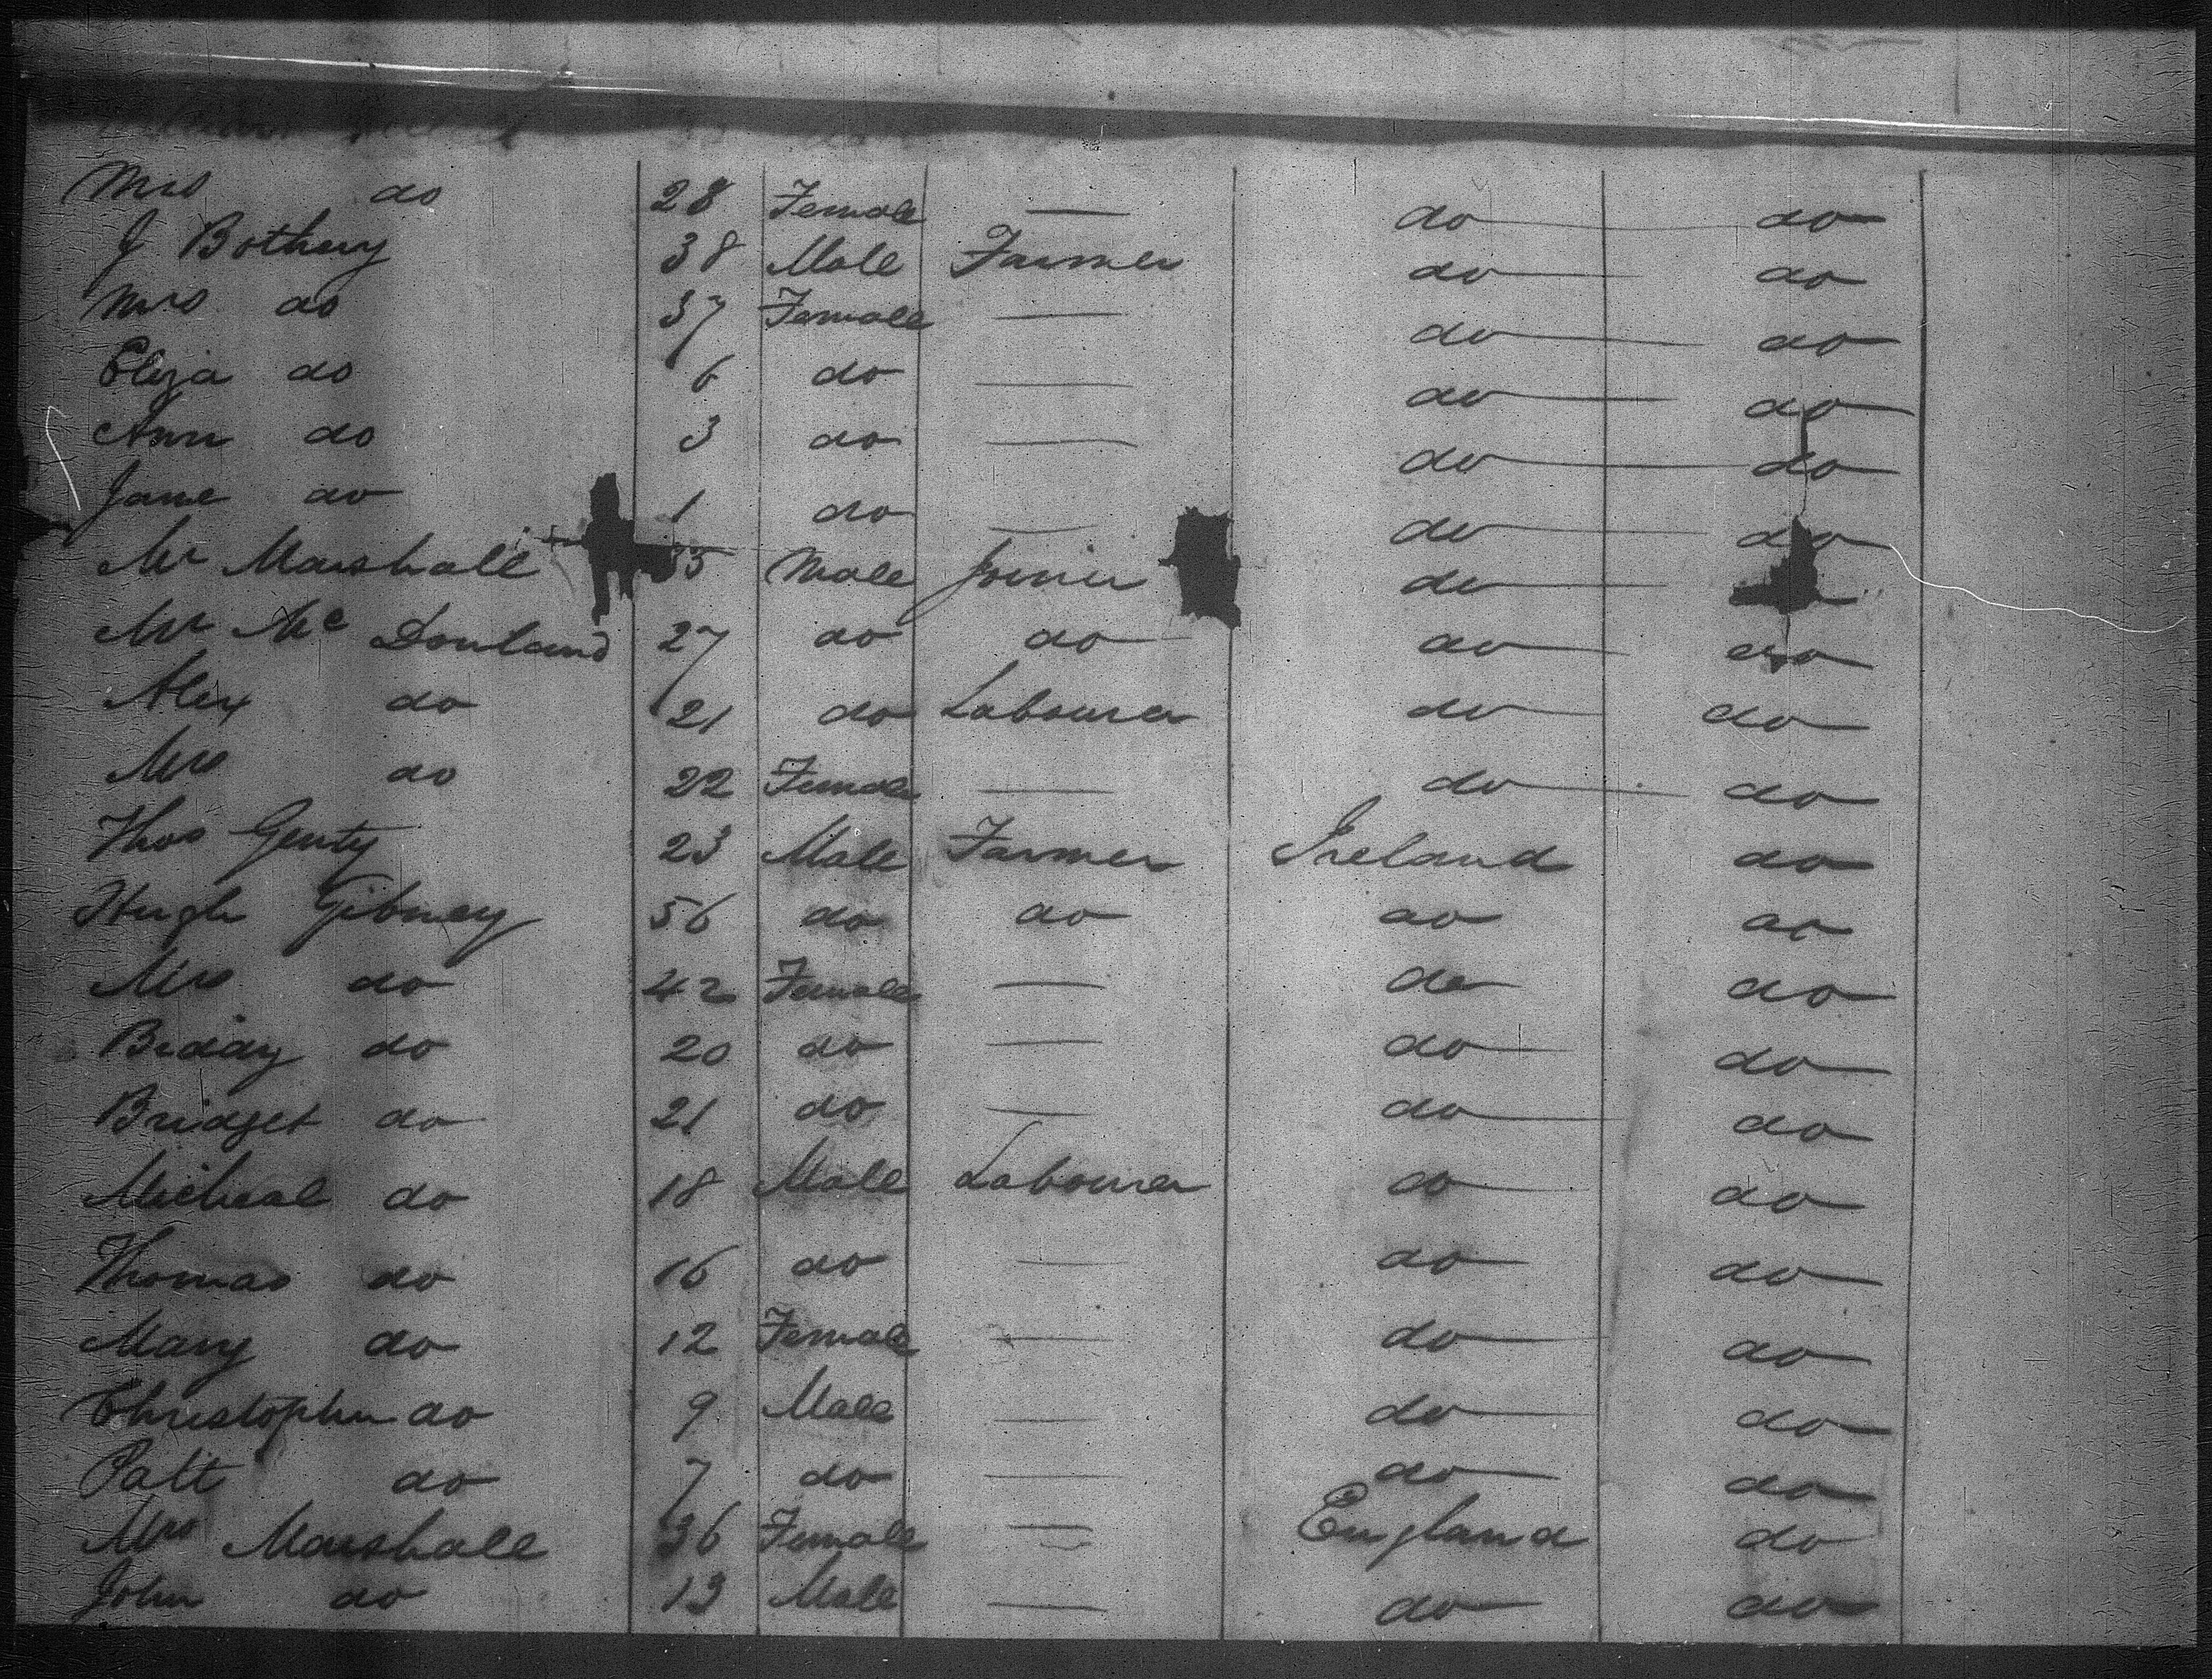 Mrs do 28 Female — do do
J Bothery 38 Male Farmer do do
Mrs do 37 Female — do do
Eliza do 6 do — do do
Ann do 3 do — do do
Jane do 1 do — do do
Mr Marshall 35 Male Joiner do
Mr Mc Donland 27 do do do do
Alex do 21 do Labourer do do
Mrs do 22 Female — do do
Thos Genty 23 Male Farmer Ireland do
Hugh Gibney 56 do do do do
Mrs do 42 Female — do do
Bidday do 20 do — do do
Bridget do 21 do — do do
Micheal do 18 Male Labourer do do
Thomas do 16 do — do do
Mary do 12 Female — do do
Christopher do 9 Male — do do
Patt do 7 do — do do
Mrs Marshall 36 Female — England do
John do 13 Male — do do